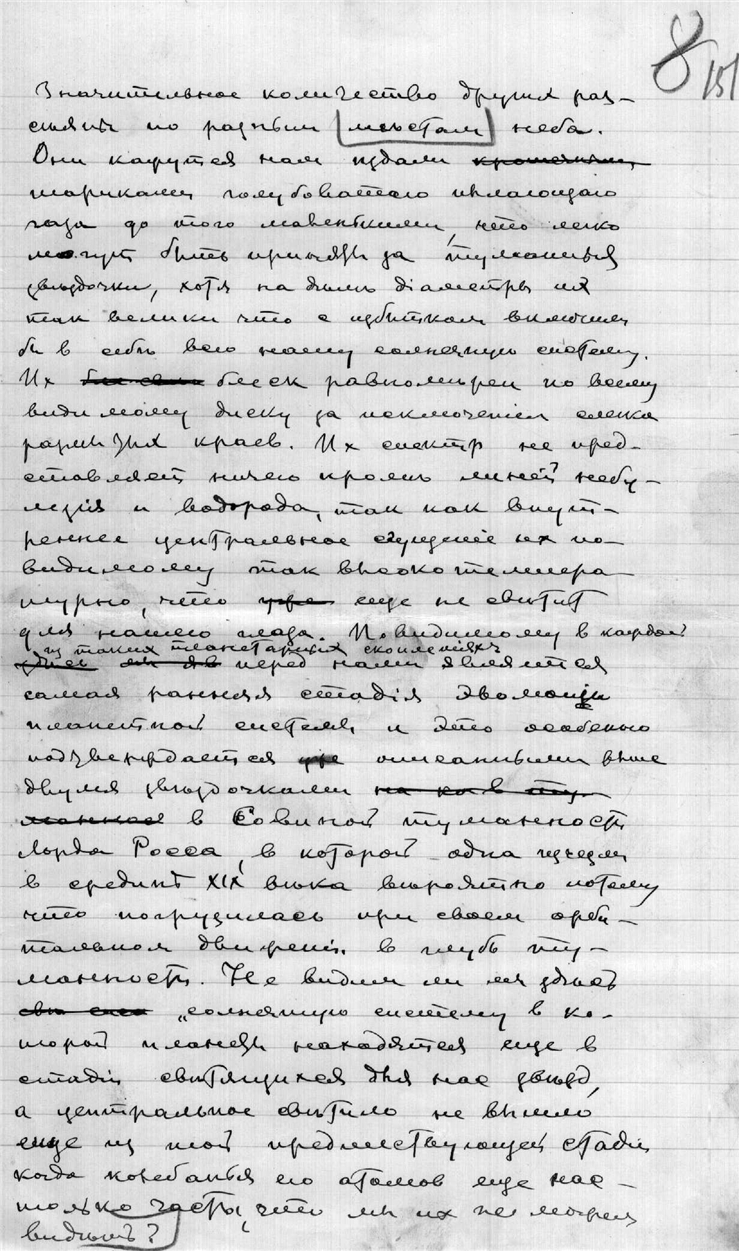 8 151
Значительное количество других раз-
сѣяно по разным мѣстам неба.
Они кажутся нам издали крошечными
шариками голубоватаго пылающаго
газа до того маленькими, что легко
могут быть приняты за туманныя
звѣздочки, хотя на дѣлѣ діаметры их
так велики что с избытком вмѣстили
бы в себѣ всю нашу солнечную систему.
Их блеск равномѣрен по всему
видимому диску за исключеніем слегка
размытых краев. Их спектр не пред-
ставляет ничего кромѣ линій небу-
лія и водорода, так как внут-
реннее центральное сгущеніе их по-
видимому так высоко темпера-
турно, что уже еще не свѣтит
для нашего глаза. Повидимому в каждой
из таких планетарных скопленіях
перед нами является
самая ранняя стадія эволюціи
планетной системы и это особенно
подтверждается уже описанными выше
двумя звѣздочками на ко в ту-
манная в Совиной туманности
Лорда Росса, в которой одна изчезла
в срединѣ XIX вѣка вѣроятно потому
что погрузилась при своем орби-
тальном движеніи в глубь ту-
манности. Не видим ли мы здѣсь
солнечную систему в ко-
торой планеты находятся еще в
стадіи свѣтящихся для нас звѣзд,
а центральное свѣтило не вышло
еще из той предшествующей стадіи
когда колебанья его атомов еще нас-
только часты, что мы их не можем
видѣть?